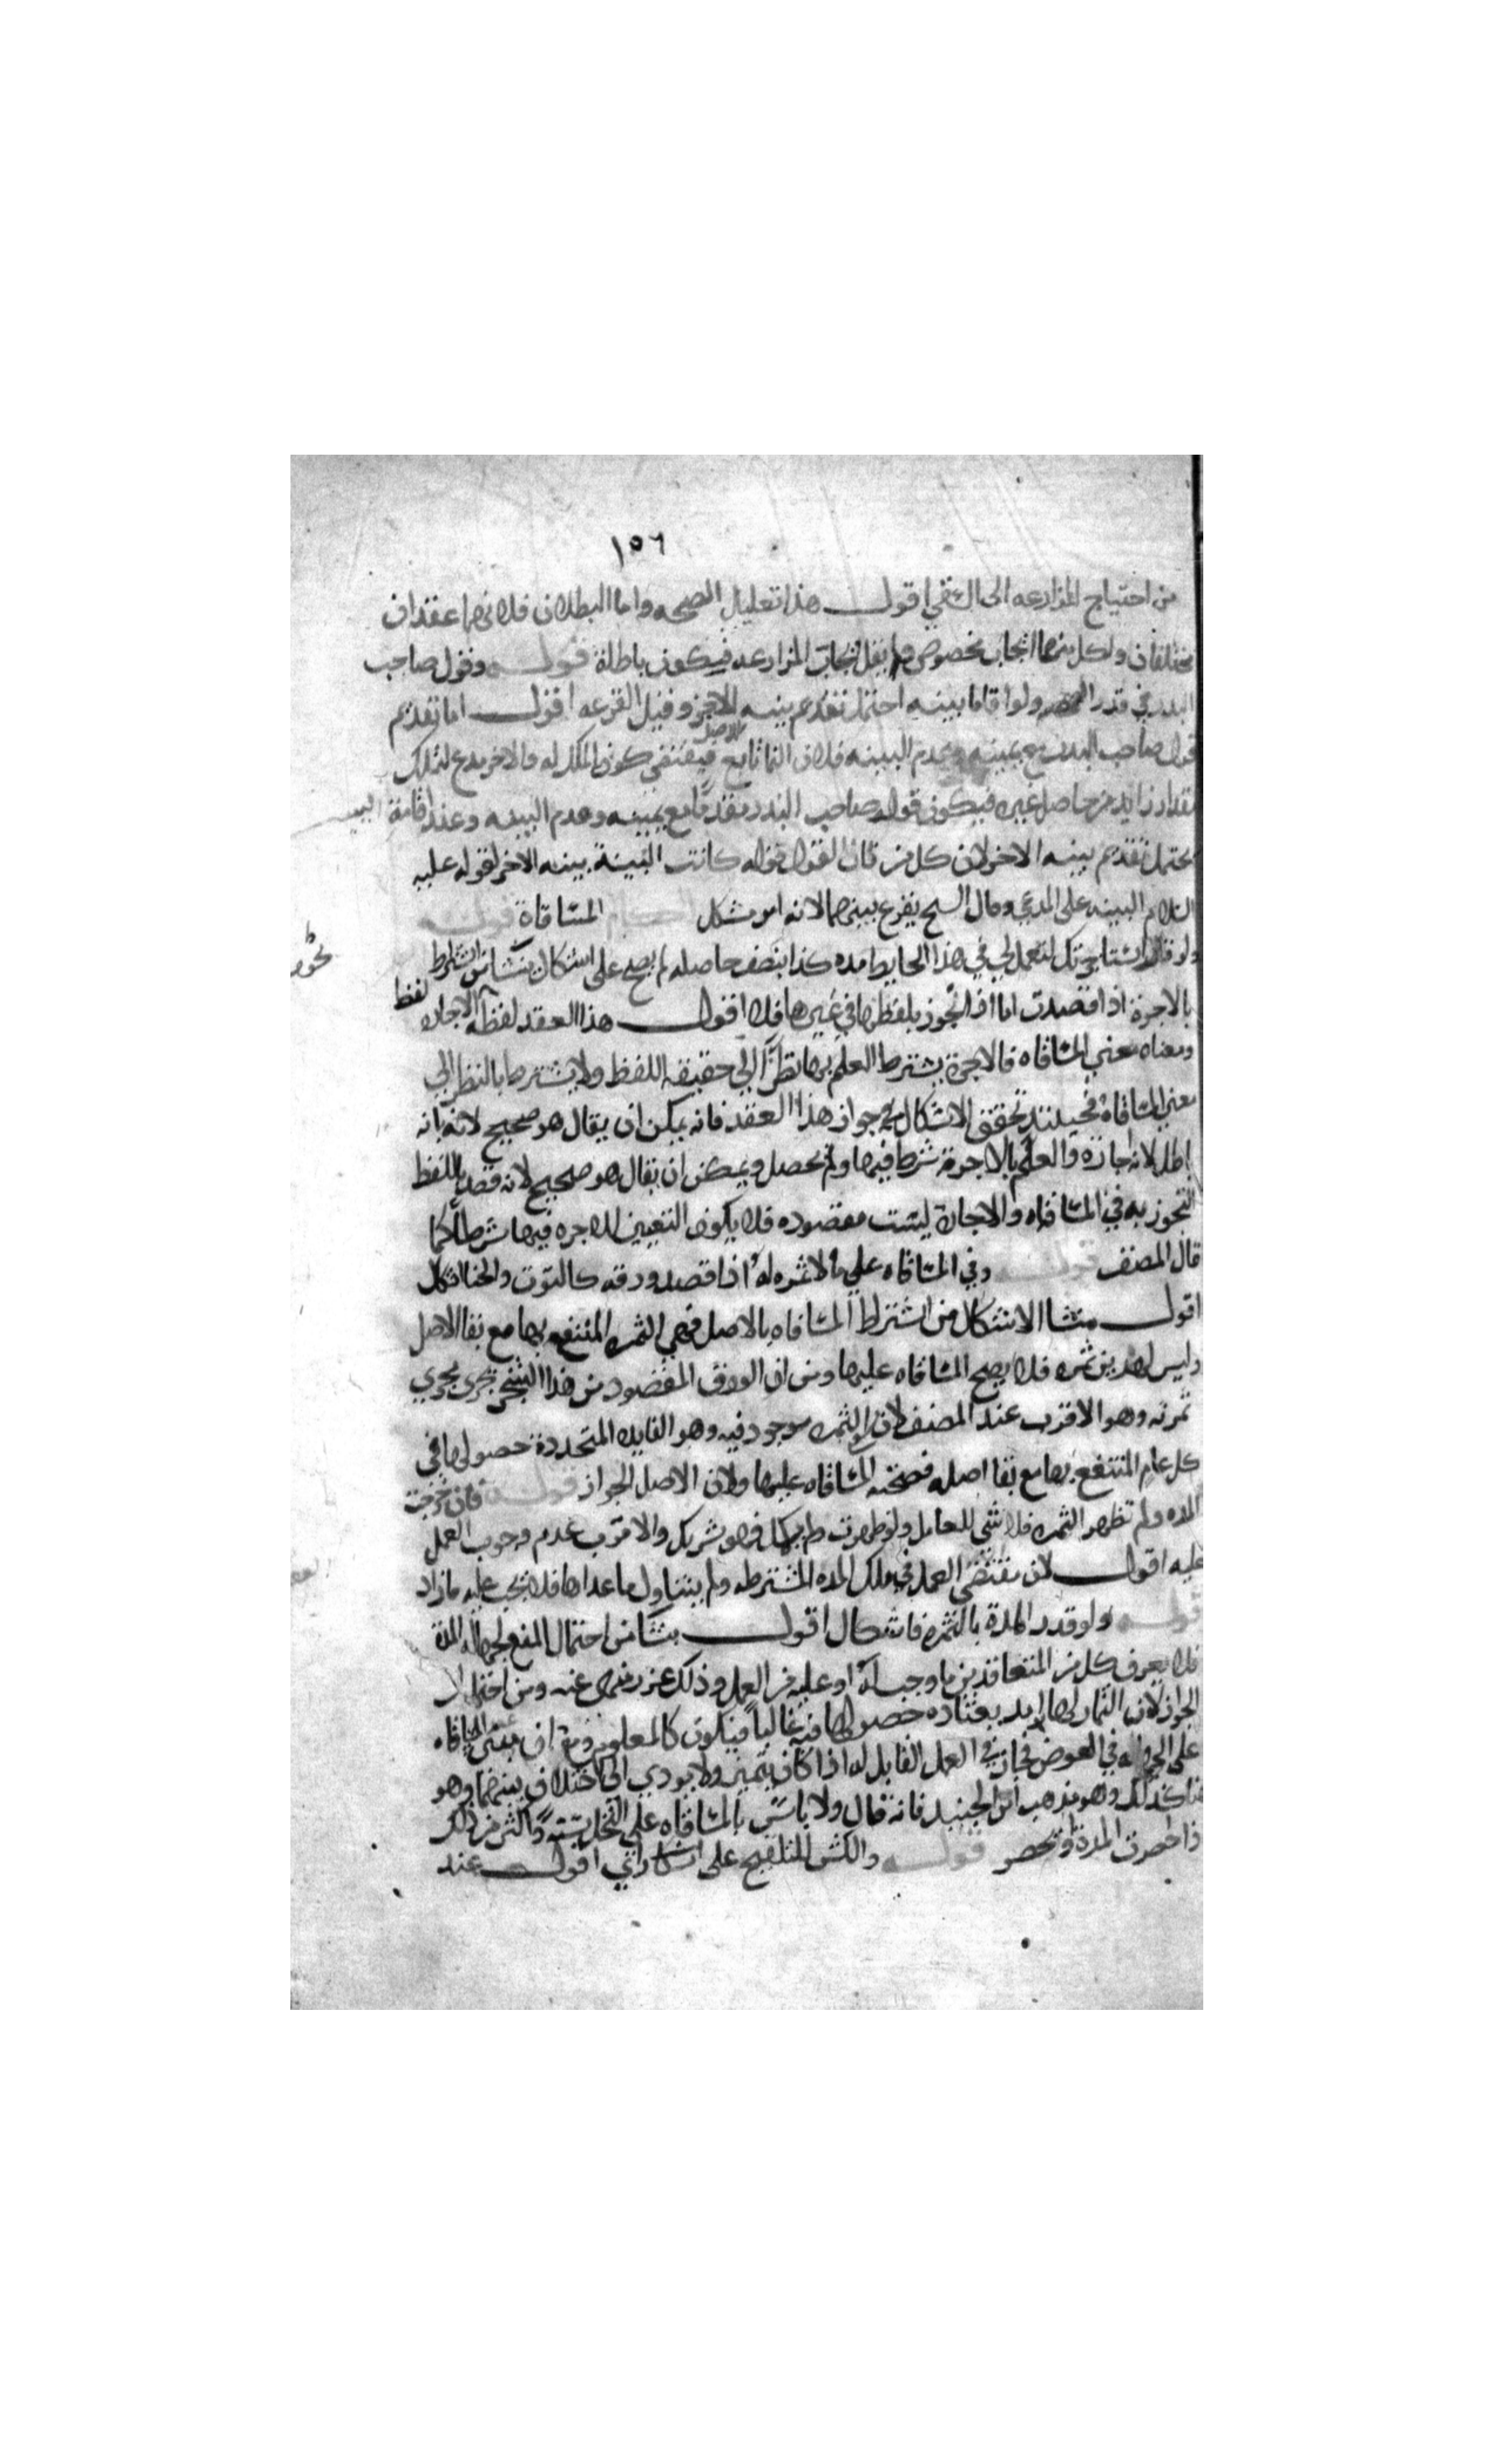 ١٥٦
من احتياج المزارعه الى السقي اقول هذا تعليل الصحه واما البطلان فلانهما عقدان
مختلفان ولكل منهما ايجاب مخصوص المزارعه فيكون باطلة قوله وقول صاحب
البذر في قدر ولو اقاما بينه احتمل تقديم بينه الاخر وقيل القرعه اقول اما تقديم
قول صاحب البذر مع يمينه وعدم البينه فلان النما تابع للاصل فيقتضي كون الملك له والاخر مدع لتملك
مقدار زايد من حاصل غيره فيكون قول صاحب البذر مقدما مع يمينه وعدم البينه وعند اقامة البينه
يحتمل تقديم بينه الاخر لان كل من كان القول قوله كانت البينة بينه الاخر لقوله عليه
السلام البينه على المدعي وقال الشيخ يقرع بينهما لانه امر مشكل المساقاة قوله
ولو قال استاجرتك لتعمل لي في هذا الحايط مده كذا بنصف حاصله لم يصح على اشكال ينشا من اشتراط
بالاجرة اذا قصدت اما اذا تجوز بلفظها في غيرها فلا اقول هذا العقد لفظه لفظ الاجاره
ومعناه معنى المساقاه فالاجرة يشترط العلم بها نظرا الى حقيقه اللفظ ولا يشترط بالنظر الى
معنى المساقاة فحينئذ تحقق الاشكال في جواز هذا العقد فانه يمكن ان يقال هو صحيح لانه بانه
باطل لانه اجازه والعلم بالاجرة شرط فيها ولم يحصل ويمكن ان يقال هو صحيح لانه قصد باللفظ
التجوز به في المساقاه والاجارة ليست مقصوده فلا يكون التعيين للاجره فيها شرطا كما
قال المصنف قوله وفي المساقاه على ما لا ثمره له اذا قصد ورقه كالتوت والحنا اشكال
اقول منشا الاشكال من اشتراط المساقاه بالاصل فهي الثمره المنتفع بها مع بقا الاصل
وليس لهذين ثمره فلا يصح المساقاه عليها ومن ان الورق المقصود من هذا الشجر يجري مجرى
ثمرته وهو الاقرب عند المصنف لان الثمره موجود فيه وهو الفايده المتجددة حصولها في
كل عام المنتفع بها مع بقا اصله فصحت المساقاه عليها ولان الاصل الجواز قوله فان خرجت
المده ولم تظهر الثمره فلا شي للعامل ولو ظهرت ولم يكمل فهو شريك والاقرب عدم وجوب العمل
عليه اقول لان مقتضى العمل في تلك المده المشترطه ولم يتناول ما عداها فلا يجب عليه ما زاد
قوله ولو قدر المدة بالثمره فاشكال اقول ينشا من احتمال المنع لجهاله المدة
فلا يعرف كل من المتعاقدين ما وجب له او عليه من العمل وذلك غرر منهي عنه ومن احتمال
الجواز لان الثمار لها امد يعتاد حصولها فيه غالبا فيكون كالمعلوم ان مبنى المساقاه
على الجهاله في العوض فجاز في العمل القابل له اذا كان يتميز ولا يودي الى اختلاف بينهما وهو
هنا كذلك وهو مذهب ابن الجنيد فانه قال ولا باس بالمساقاه على النخل سنة واكثر من ذلك
اذا حصرت المدة او تحصر قوله والكش للتلقيح على راي اقول عند